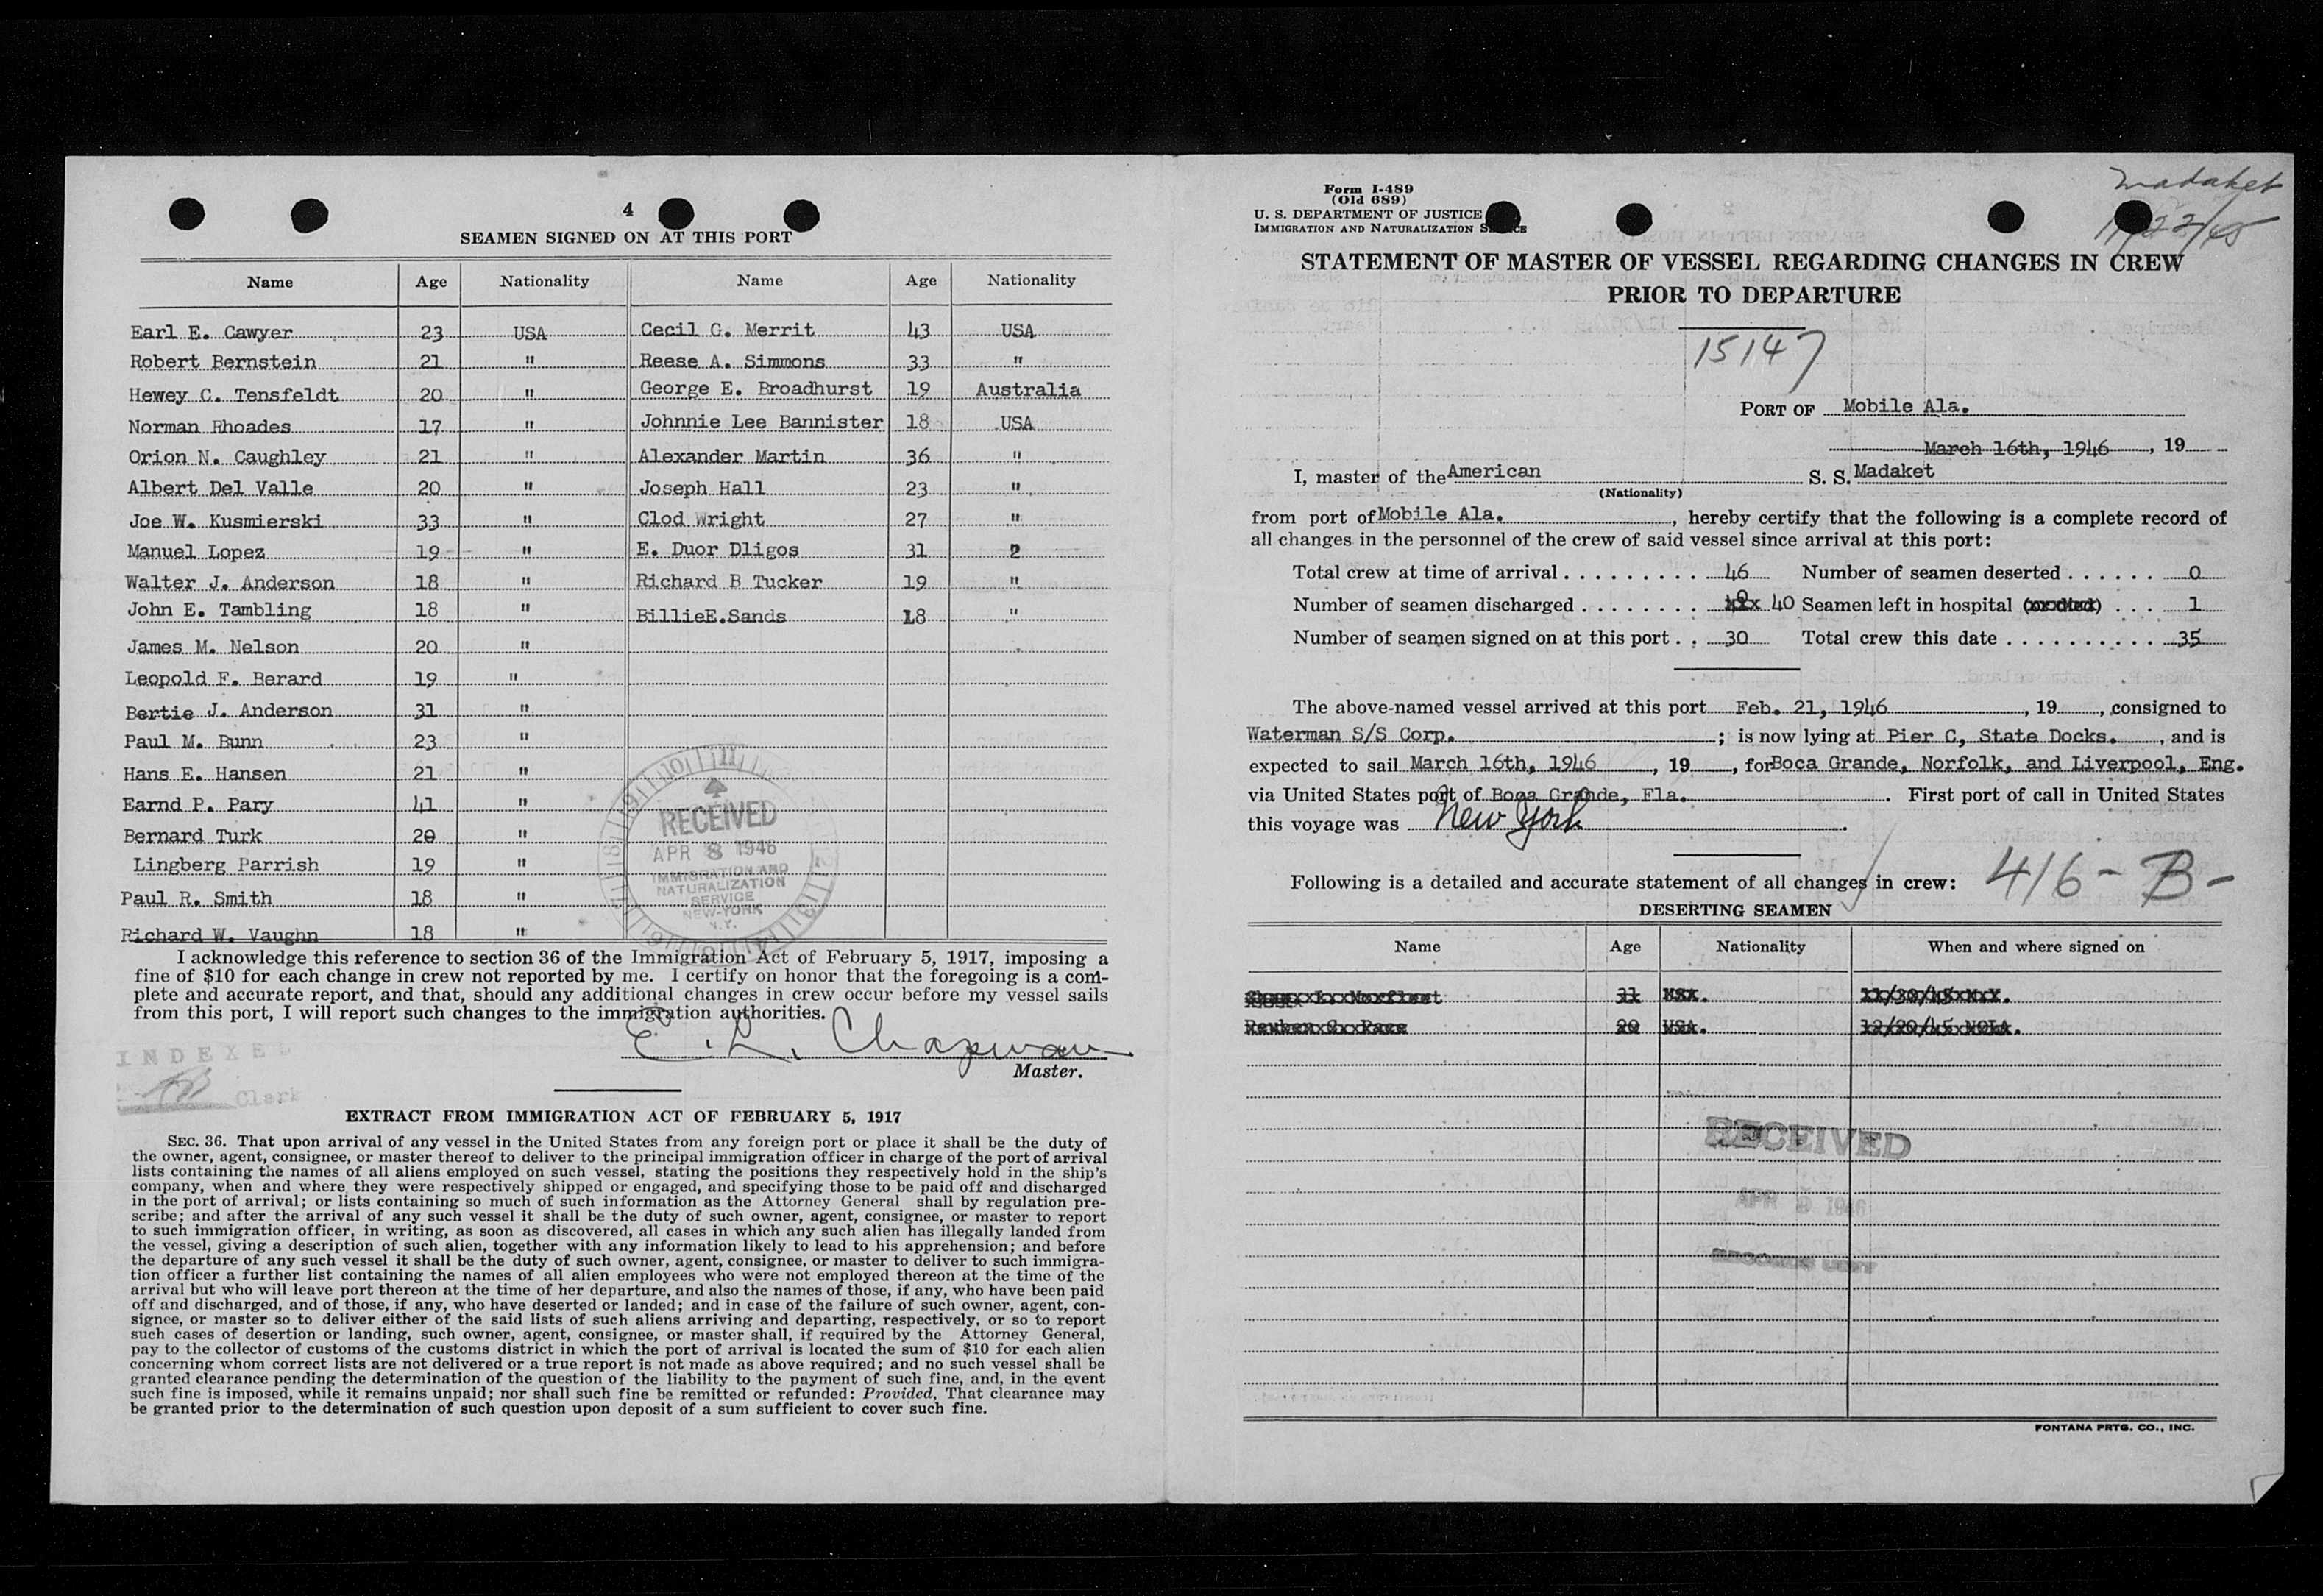 4
SEAMEN SIGNED ON AT THIS PORT
Name Age Nationality Name Age Nationality
Earl E. Cawyer 23 USA Cecil G. Merrit 43 USA
Robert Bernstein 21 " Reese A. Simmons 33 "
Hewey C. Tensfeldt 20 " George E. Broadhurst 19 Australia
Norman Rhoades 17 " Johnnie Lee Bannister 18 USA
Orion N. Caughley 21 " Alexander Martin 36 "
Albert Del Valle 20 " Joseph Hall 23 "
Joe W. Kusmierski 33 " Clod Wright 27 "
Manuel Lopez 19 " E. Duor Dligos 31 2
Walter J. Anderson 18 " Richard B Tucker 19 "
John E. Tambling 18 " BillieE.Sands 18 "
James M. Nelson 20 "
Leopold F. Berard 19 "
Bertie J. Anderson 31 "
Paul M. Bunn 23 "
Hans E. Hansen 21 "
Earnd P. Pary 41 "
Bernard Turk 20 "
Lingberg Parrish 19 "
Paul R. Smith 18 "
Richard W. Vaughn 18 "
RECEIVED
APR 8 1946
IMMIGRATION AND
NATURALIZATION
SERVICE
NEW-YORK
N.Y.
I acknowledge this reference to section 36 of the Immigration Act of February 5, 1917, imposing a
fine of $10 for each change in crew not reported by me. I certify on honor that the foregoing is a com-
plete and accurate report, and that, should any additional changes in crew occur before my vessel sails
from this port, I will report such changes to the immigration authorities.
E. L. Chapman
Master.
INDEXED
Clerk
EXTRACT FROM IMMIGRATION ACT OF FEBRUARY 5, 1917
SEC. 36. That upon arrival of any vessel in the United States from any foreign port or place it shall be the duty of
the owner, agent, consignee, or master thereof to deliver to the principal immigration officer in charge of the port of arrival
lists containing the names of all aliens employed on such vessel, stating the positions they respectively hold in the ship's
company, when and where they were respectively shipped or engaged, and specifying those to be paid off and discharged
in the port of arrival; or lists containing so much of such information as the Attorney General shall by regulation pre-
scribe; and after the arrival of any such vessel it shall be the duty of such owner, agent, consignee, or master to report
to such immigration officer, in writing, as soon as discovered, all cases in which any such alien has illegally landed from
the vessel, giving a description of such alien, together with any information likely to lead to his apprehension; and before
the departure of any such vessel it shall be the duty of such owner, agent, consignee, or master to deliver to such immigra-
tion officer a further list containing the names of all alien employees who were not employed thereon at the time of the
arrival but who will leave port thereon at the time of her departure, and also the names of those, if any, who have been paid
off and discharged, and of those, if any, who have deserted or landed; and in case of the failure of such owner, agent, con-
signee, or master so to deliver either of the said lists of such aliens arriving and departing, respectively, or so to report
such cases of desertion or landing, such owner, agent, consignee, or master shall, if required by the Attorney General,
pay to the collector of customs of the customs district in which the port of arrival is located the sum of $10 for each alien
concerning whom correct lists are not delivered or a true report is not made as above required; and no such vessel shall be
granted clearance pending the determination of the question of the liability to the payment of such fine, and, in the event
such fine is imposed, while it remains unpaid; nor shall such fine be remitted or refunded: Provided, That clearance may
be granted prior to the determination of such question upon deposit of a sum sufficient to cover such fine.
Form I-489
(Old 689)
U. S. DEPARTMENT OF JUSTICE
IMMIGRATION AND NATURALIZATION SERVICE
Madaket
11/22/45
STATEMENT OF MASTER OF VESSEL REGARDING CHANGES IN CREW
PRIOR TO DEPARTURE
15147
PORT OF Mobile Ala.
March 16th, 1946, 19
I, master of the American S. S. Madaket
(Nationality)
from port of Mobile Ala., hereby certify that the following is a complete record of
all changes in the personnel of the crew of said vessel since arrival at this port:
Total crew at time of arrival . . . . . . . . . 46 Number of seamen deserted . . . . . . 0
Number of seamen discharged . . . . . . . . 40 Seamen left in hospital (or died) . . . 1
Number of seamen signed on at this port . . 30 Total crew this date . . . . . . . . . . . 35
The above-named vessel arrived at this port Feb. 21, 1946, 19, consigned to
Waterman S/S Corp. ; is now lying at Pier C, State Docks. , and is
expected to sail March 16th, 1946, 19, for Boca Grande, Norfolk, and Liverpool, Eng.
via United States port of Boca Grande, Fla. . First port of call in United States
this voyage was New York .
Following is a detailed and accurate statement of all changes in crew: 416-B-
DESERTING SEAMEN
Name Age Nationality When and where signed on
31 USA. 11/30/45 N.Y.
Reuben C. Pace 20 USA. 12/20/45 NOLA.
RECEIVED
APR 9 1946
RECORDS UNIT
FONTANA PRTG. CO., INC.